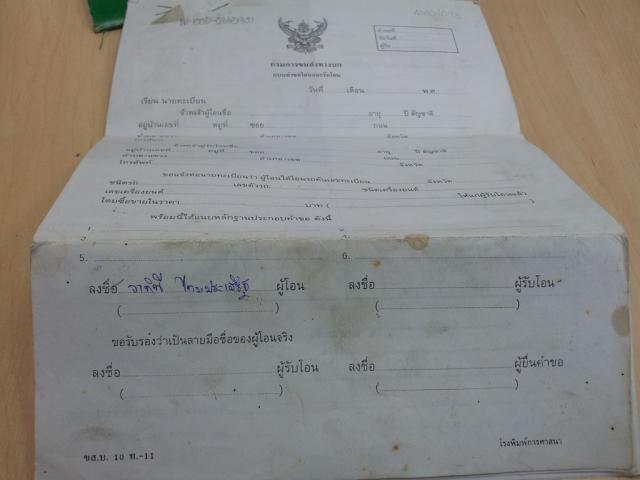 คำขอที่
รับวันที่
ผู้รับ
กรมการขนส่งทางบก
แบบคำขอโอนและรับโอน
วันที่ เดือน พ.ศ.
เรียน นายทะเบียน
ข้าพเจ้าผู้โอนชื่อ อายุ ปี สัญชาติ
อยู่บ้านเลขที่ หมู่ที่ ซอย ถนน
ตำบล/แขวง อำเภอ/เขต จังหวัด
โทรศัพท์ ข้าพเจ้าผู้รับโอนชื่อ อายุ ปี สัญชาติ
อยู่บ้านเลขที่ หมู่ที่ ซอย ถนน
ตำบล/แขวง อำเภอ/เขต จังหวัด
โทรศัพท์
ขอแจ้งต่อนายทะเบียนว่า ผู้โอนได้โอนรถคันเลขทะเบียน จังหวัด
ชนิดรถ เลขตัวรถ ชนิดเครื่องยนต์
เลขเครื่องยนต์ ให้แก่ผู้รับโอนแล้ว
โดยซื้อขายในราคา บาท (
พร้อมนี้ได้แนบหลักฐานประกอบคำขอ ดังนี้
1.
5. 6.
ลงชื่อ ผู้โอน ลงชื่อ ผู้รับโอน
( ) ( )
ขอรับรองว่าเป็นลายมือชื่อของผู้โอนจริง
ลงชื่อ ผู้รับโอน ลงชื่อ ผู้ยื่นคำขอ
( ) ( )
ขส.บ. 10 ท.-11 โรงพิมพ์การศาสนา